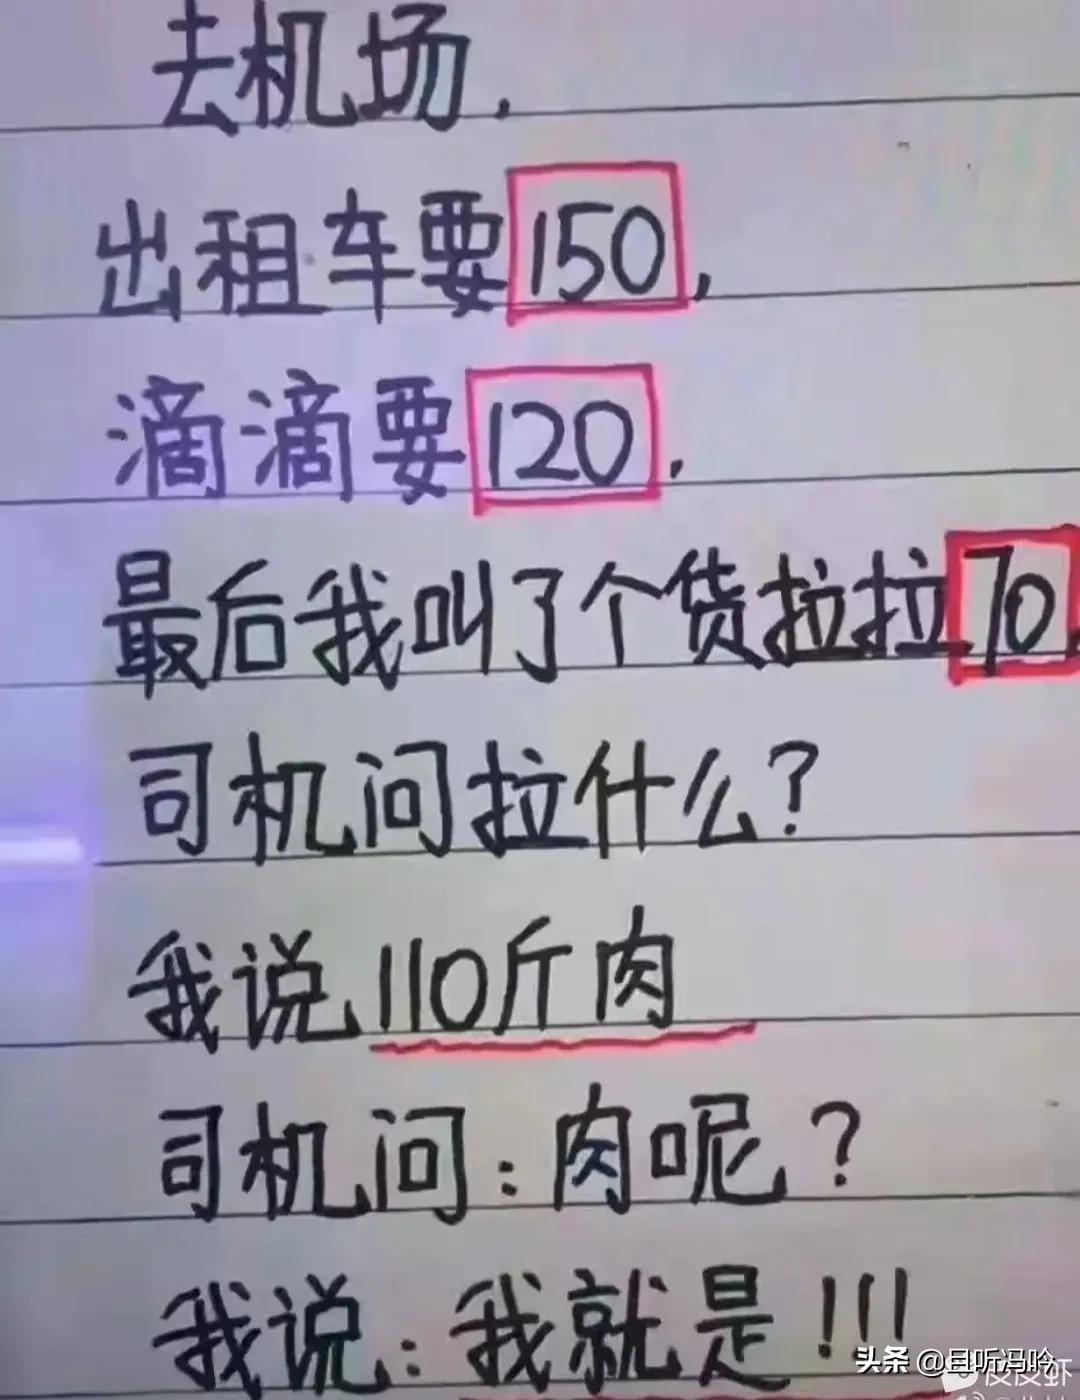 去机场,
出租车要150,
滴滴要120,
最后我叫了个货拉拉70,
司机问拉什么?
我说110斤肉
司机问:肉呢?
我说:我就是!!!
头条 @且听冯吟
皮皮虾